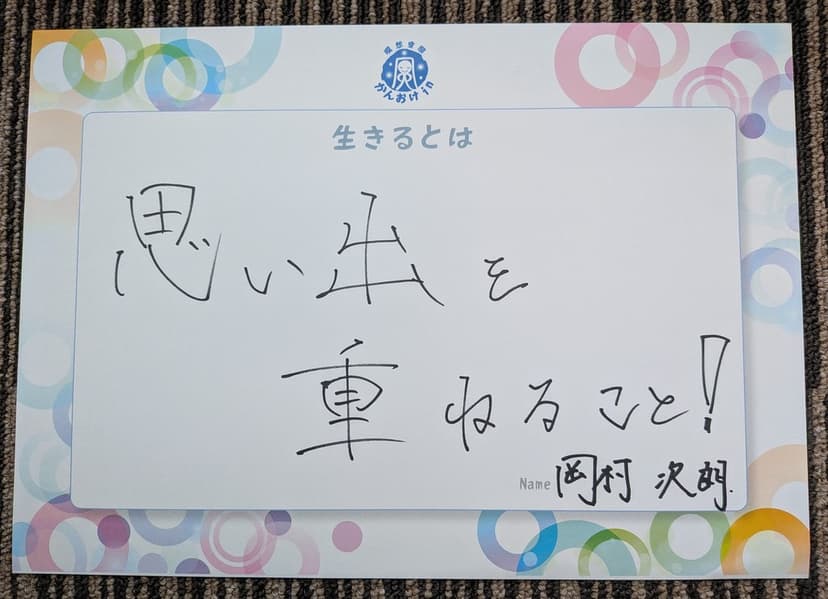 瞑想空間
かんおけin
生きるとは
思い出を
重ねること!
Name 岡村 次朗